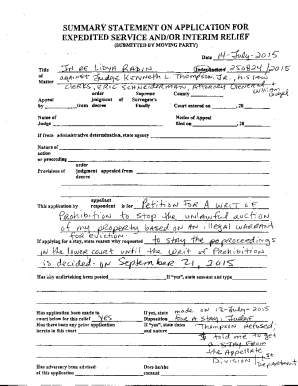 SUMMARY STATEMENT ON APPLICATION FOR
EXPEDITED SERVICE AND/OR INTERIM RELIEF
(SUBMITTED BY MOVING PARTY)
Date 14-July-2015
Title In re Lidya Radin Index/Indict # 250824/2015
of against Judge Kenneth L. Thompson, Jr., his law
Matter clerks, Eric Schneiderman, Attorney General & William
order Supreme County
Appeal judgment of Surrogate's
by from decree Family Court entered on 20
Name of Notice of Appeal
Judge filed on 20
If from administrative determination, state agency
Nature of
action
or proceeding
order
Provisions of judgment appealed from
decree
appellant
This application by respondent is for Petition for a Writ of
Prohibition to stop the unlawful auction
of my property based on an illegal warrant
for eviction.
If applying for a stay, state reason why requested to stay the proceedings
in the lower court until the Writ of Prohibition
is decided on September 21, 2015
Has any undertaking been posted If "yes", state amount and type
Has application been made to If yes, state made on 13-July-2015
court below for this relief yes Disposition for a stay; Judge
Has there been any prior application If "yes", state dates Thompson refused,
herein in this court and nature & told me to get
a stay from
the Appellate
Division 1st
Department
Has adversary been advised Does he/she
of this application consent